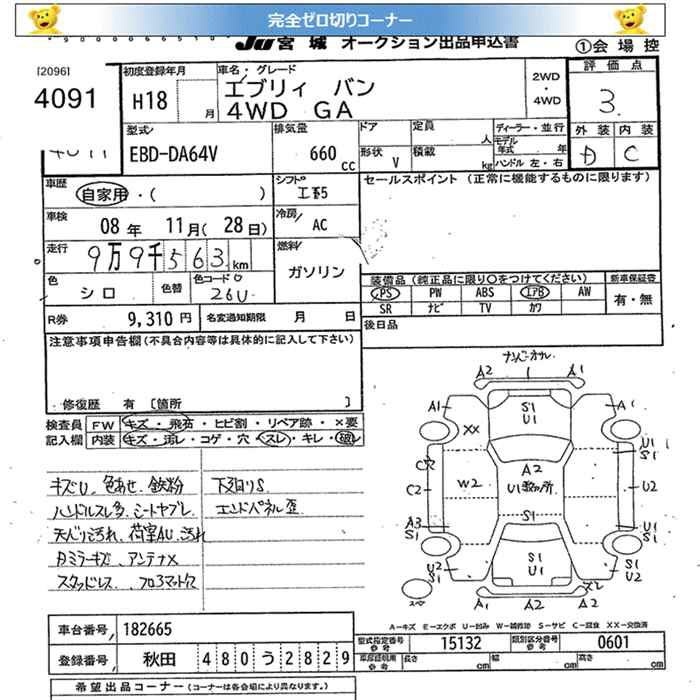 完全ゼロ切りコーナー
JU 宮城 オークション出品申込書
①会場控
[2096]
4091
初度登録年月
H18 月
車名・グレード
エブリィ バン
4WD GA
2WD
・
4WD
評価点
3
型式
EBD-DA64V
排気量
660 cc
ドア
形状 V
定員 人
積載 kg
ディーラー・並行
モデル年式 年
ハンドル 左・右
外装 内装
D C
車歴
自家用・( )
シフト
エ1F5
セールスポイント (正常に機能するものに限ります)
車検
08年 11月(28日)
冷房
AC
走行
9万9千563km
燃料
ガソリン
色
シロ
色替
色コード
26U
装備品(純正品に限り○をつけてください)
新車保証書
PS PW ABS エアB AW
有・無
SR ナビ TV カワ
R券 9,310円
名変通知期限 月 日
後日品
注意事項申告欄(不具合内容等は具体的に記入して下さい)
修復歴 有 [箇所 ]
検査員
記入欄
FW キズ・飛石・ヒビ割・リペア跡・×要
内装 キズ・汚レ・コゲ・穴・スレ・キレ・破レ
キズU、色あせ、鉄粉
ハンドルスレ多、シートヤブレ
天バリ汚れ、荷室AU、汚れ
Rミラーキズ、アンテナX
スタッドレス、フロアマット欠
下廻りS
エンドパネル歪
ナンバーオカル
A2 1 A1
A1 S1 U1 A1
XX
U1 S1
C穴
C2 W2 A2 U1数ヶ所 U2
A3 S1 S1 U1 S1
U2 S1 S1 U1 S1 U2
X2
スペア
A1 A2 A2
A-キズ E-エクボ U-凹み W-補修跡 S-サビ C-腐食 XX-交換済
車台番号 182665
型式指定番号 参考 15132
類別区分番号 参考 0601
登録番号 秋田 480う2829
車庫証明用 参考 長さ cm 幅 cm 高さ cm
希望出品コーナー(コーナーは各会場により異なります。)